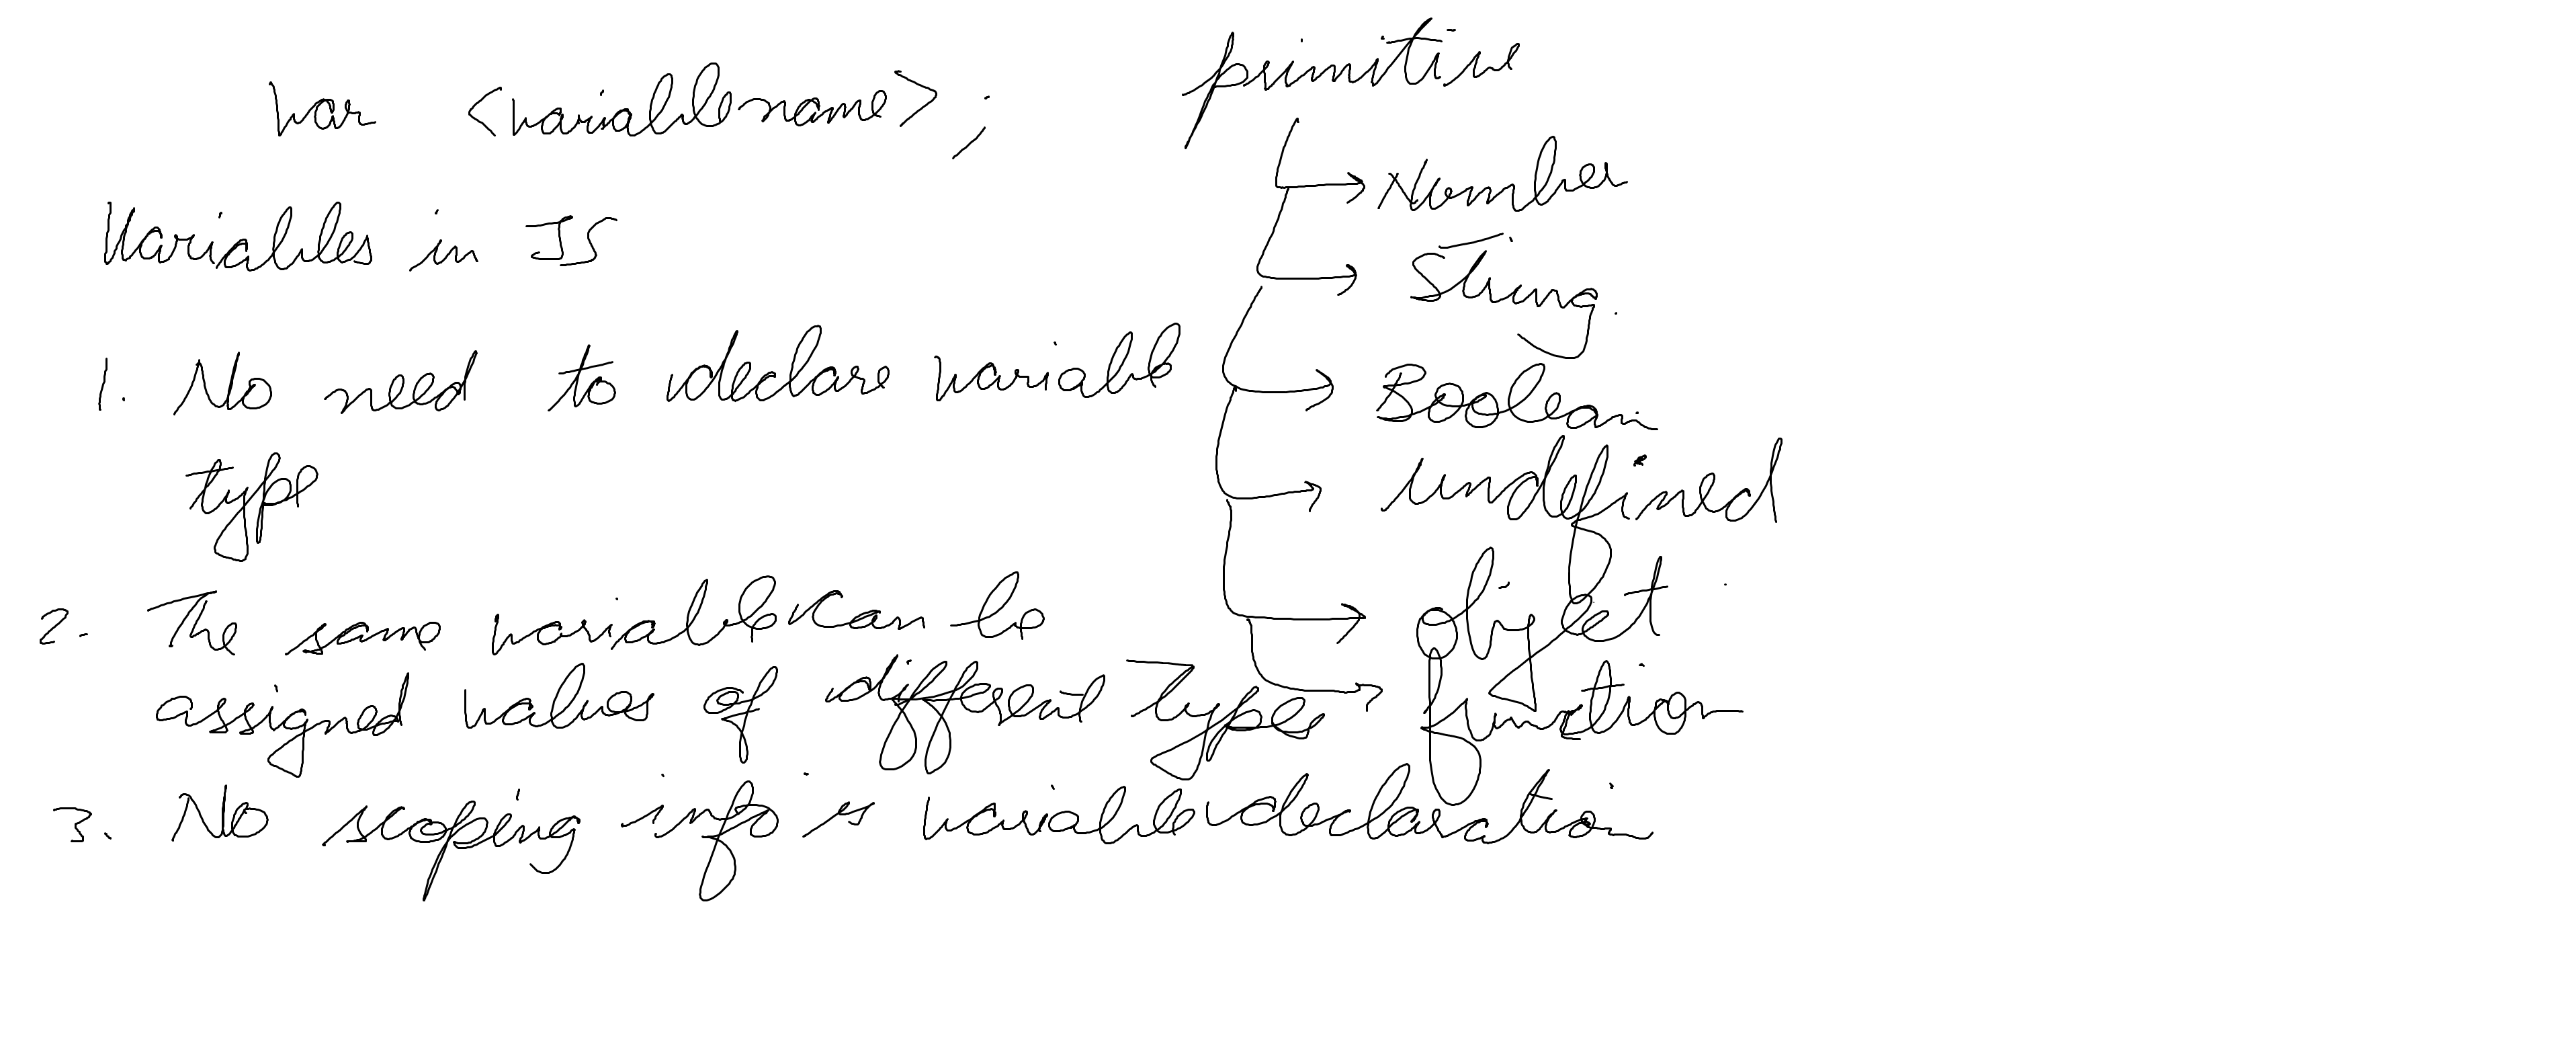 var <variablename>;
Variables in JS
1. No need to declare variable
type
2. The same variable can be
assigned values of different types
3. No scoping info is variable declaration
primitive
Number
String.
Boolean
undefined
object
function